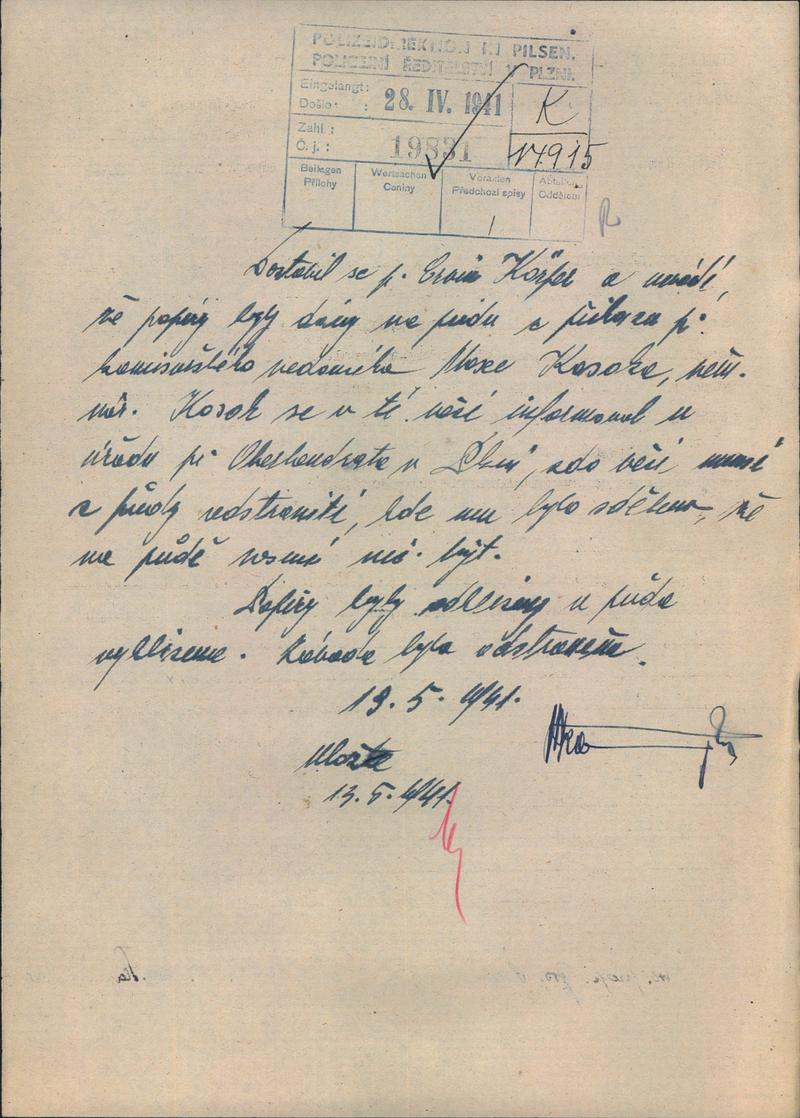 POLIZEIDIREKTION IN PILSEN.
POLICEJNÍ ŘEDITELSTVÍ V PLZNI.
Eingelangt:
Došlo: 28. IV. 1941 K
Zahl:
Č. j.: 19831 17915
Beilagen Wertsachen Vorakten Abteilung
Přílohy Ceniny Předchozí spisy Oddělení
Dostavil se p. Ervín a uvádí,
že papíry byly dány na půdu z příkazu p.
komisařského vedoucího Maxe Kosaka, něm.
nár. Kosak se v té věci informoval u
úřadu p. Oberlandrata v Plzni, zdo věci musí
z půdy odstraniti, kde mu bylo sděleno, že
na půdě nesmí nic být.
Papíry byly odklizeny a půda
vyklizena. Závada byla odstraněna.
12. 5. 1941.
Vložte
13. 5. 1941.